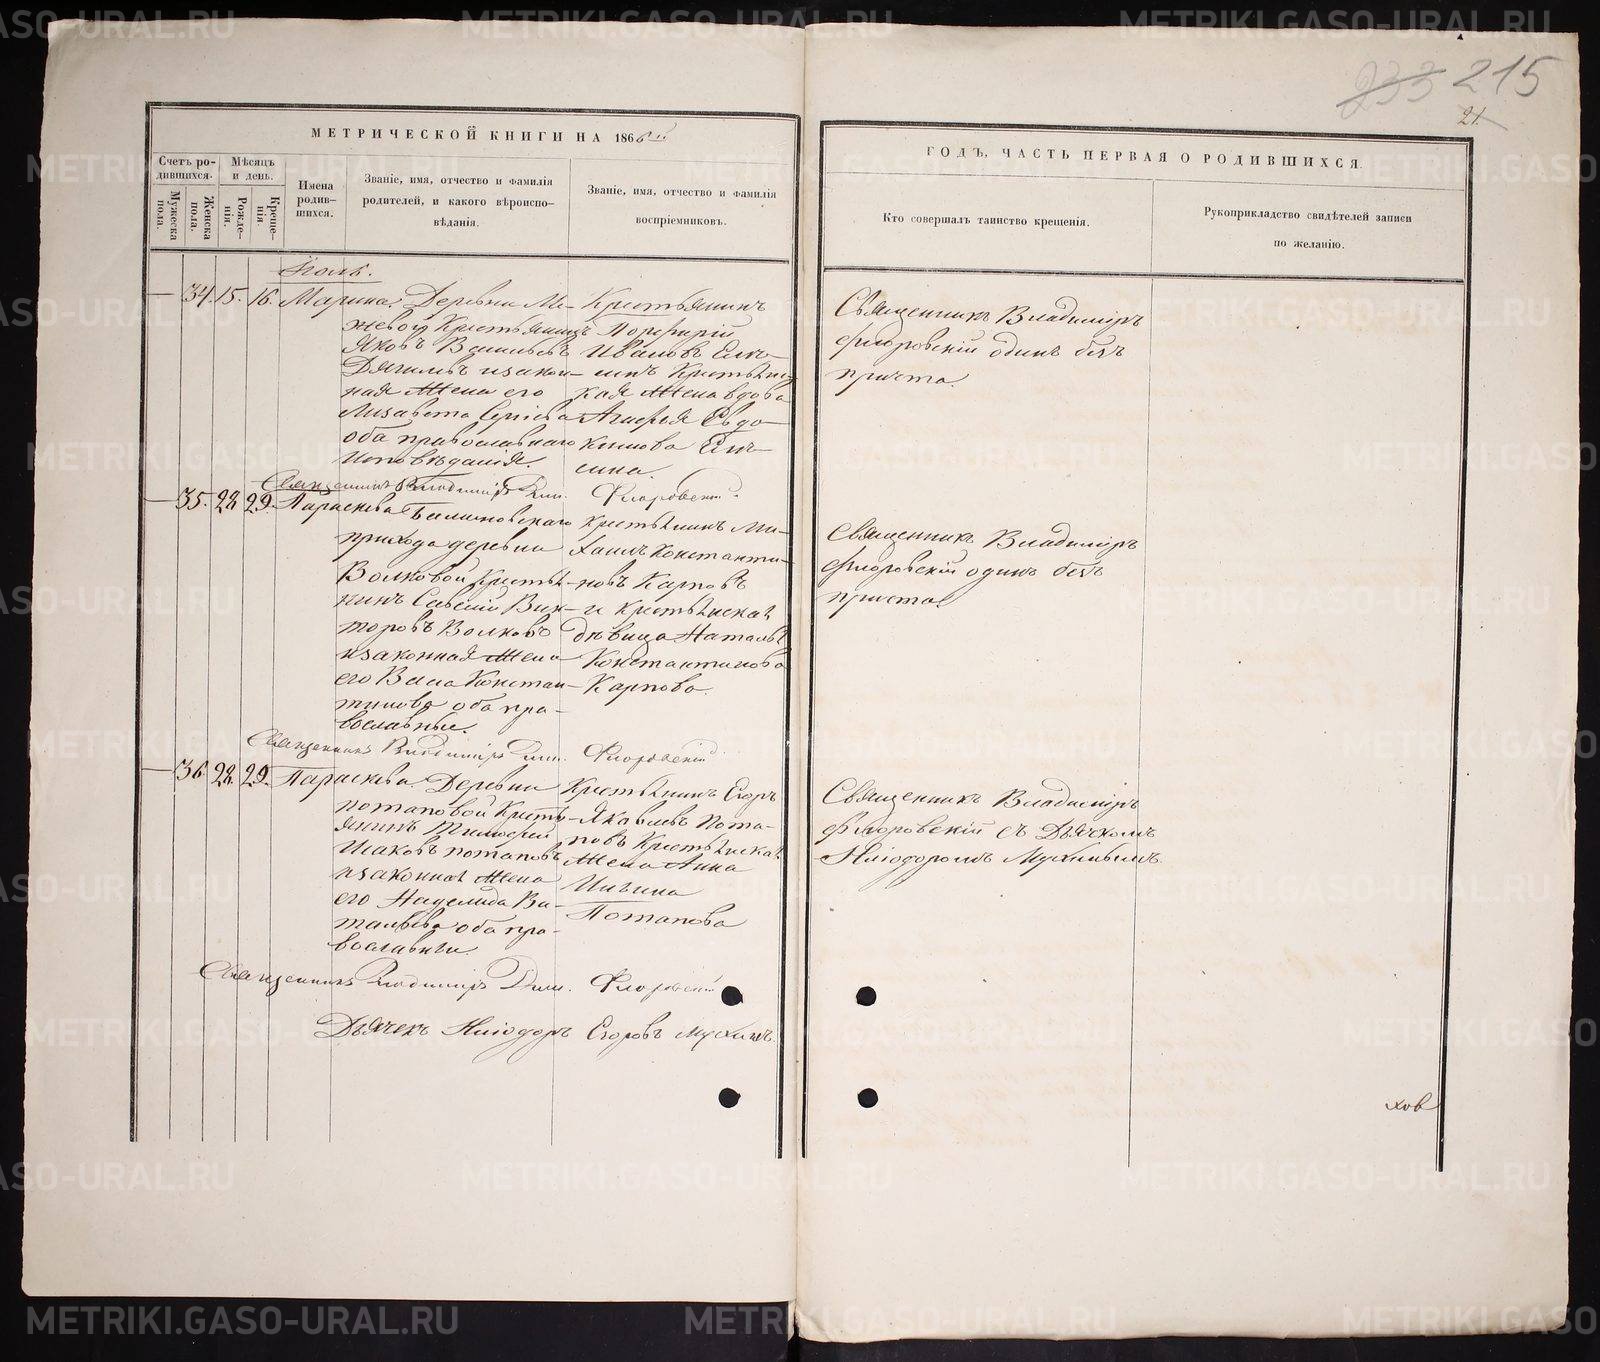 233 215
21
МЕТРИЧЕСКОЙ КНИГИ НА 1866й
ГОДЪ, ЧАСТЬ ПЕРВАЯ О РОДИВШИХСЯ.
Счетъ ро-
дившихся.
Мѣсяцъ
и день.
Мужеска
пола.
Женска
пола.
Рожде-
нія.
Креще-
нія.
Имена
родив-
шихся.
Званіе, имя, отчество и фамилія
родителей, и какого вѣроиспо-
вѣданія.
Званіе, имя, отчество и фамилія
воспріемниковъ.
Кто совершалъ таинство крещенія.
Рукоприкладство свидѣтелей записи
по желанію.
Іюль.
34. 15. 16. Марина.
Деревни Ме-
жевой Крестьянинъ
Яковъ Васильевъ
Дягилевъ изакон-
ная жена его
Лизавета Сергіева
оба православнаго
Исповѣданія.
Крестьянинъ
Порфирій
Ивановъ
Крестьянс-
кая жена вдова
Агафья Евдо-
кимова
Священникъ Владиміръ
Флоровскій одинъ безъ
причта.
Священникъ Владиміръ Дим. Флоровскій.
35. 28 29. Параскева
прихода деревни
Волковой Крестья-
нинъ Савелій Вик-
торовъ Волковъ
изаконная жена
его Васса Констан-
тинова оба пра-
вославные.
Крестьянинъ Ми-
хаилъ Константи-
новъ Карповъ
и крестьянская
дѣвица Наталья
Константинова
Карпова.
Священникъ Владиміръ
Флоровскій одинъ безъ
причта.
Священникъ Владиміръ Дим. Флоровскій
36. 28. 29. Параскева.
Деревни
потаповой Кресть-
янинъ Тимофей
Исаковъ потаповъ
изаконная жена
его Надежда Ви-
тальева оба пра-
вославные.
Крестьянинъ Егоръ
Яковлевъ Пота-
повъ Крестьянская
жена Анна
Потапова
Священникъ Владиміръ
Флоровскій съ Дьячкомъ
Иліодоромъ Мухинымъ.
Священникъ Владиміръ Дим. Флоровскій
Дьячекъ Иліодоръ Егоровъ Мухинъ.
ховъ
METRIKI.GASO-URAL.RU